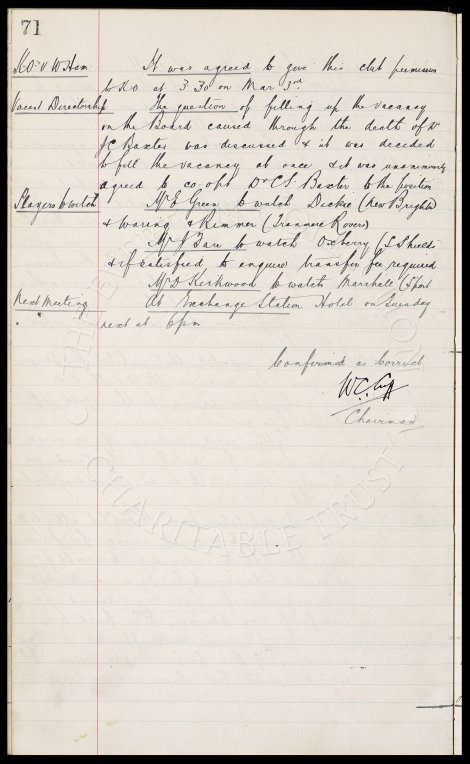 71
K.O. v W Ham It was agreed to give this club permission
to K.O. at 3.30 on Mar 3rd
Vacant Directorship The question of filling up the vacancy
on the Board caused through the death of Dr
J.C. Baxter was discussed & it was decided
to fill the vacancy at once & it was unanimously
agreed to co-opt Dr C S Baxter to the position
Players to watch Mr E Green to watch Dickie (New Brighton)
& Waring & Rimmer (Tranmere Rovers)
Mr to watch Oxberry (S. Shields
& if satisfied to enquire transfer fee required
Mr D Kirkwood to watch Marshall (S'port
Next Meeting At Exchange Station Hotel on Tuesday
" " next at 6pm
Confirmed as Correct
W.C. Cuff
Chairman
THE
CHARITABLE TRUST